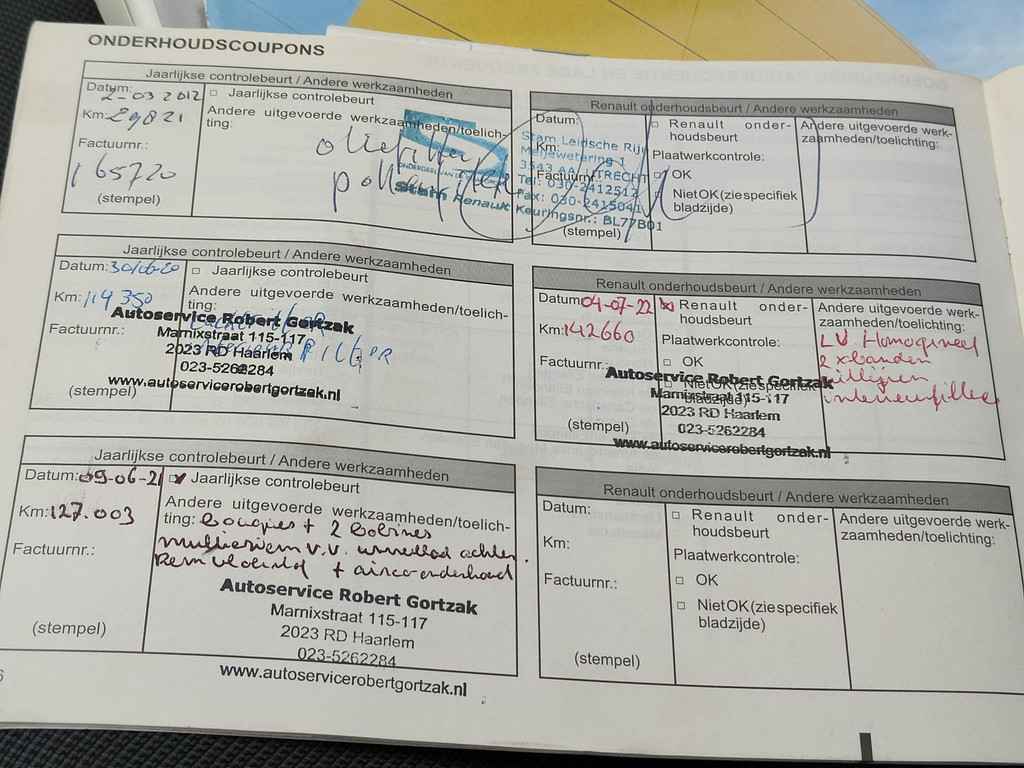 ONDERHOUDSCOUPONS
Jaarlijkse controlebeurt / Andere werkzaamheden
Datum: 2-03 2012
□ Jaarlijkse controlebeurt
Km: 29821
Andere uitgevoerde werkzaamheden/toelich-
ting:
oliefilter
pollenfilter
Factuurnr.:
165720
(stempel)
stam Renault
Renault onderhoudsbeurt / Andere werkzaamheden
Datum:
Km:
Factuurnr.:
(stempel)
Stam Leidsche Rijn
Meijewetering 1
3543 AA UTRECHT
Tel: 030-2412512
Fax: 030-2415041
Keuringsnr.: BL77B01
□ Renault onder-
houdsbeurt
Plaatwerkcontrole:
OK
Niet OK (zie specifiek
bladzijde)
Andere uitgevoerde werk-
zaamheden/toelichting:
Jaarlijkse controlebeurt / Andere werkzaamheden
Datum: 30/06-20
□ Jaarlijkse controlebeurt
Km: 114 350
Andere uitgevoerde werkzaamheden/toelich-
ting:
FILTER
Factuurnr.:
(stempel)
Autoservice Robert Gortzak
Marnixstraat 115-117
2023 RD Haarlem
023-5262284
www.autoservicerobertgortzak.nl
Renault onderhoudsbeurt / Andere werkzaamheden
Datum: 04-07-22
Km: 142660
Factuurnr.:
(stempel)
Renault onder-
houdsbeurt
Plaatwerkcontrole:
□ OK
□ Niet OK (zie specifiek
bladzijde)
Andere uitgevoerde werk-
zaamheden/toelichting:
L.V. Homogineel
2 x banden
uitlijnen
interieurfilter
Autoservice Robert Gortzak
Marnixstraat 115-117
2023 RD Haarlem
023-5262284
www.autoservicerobertgortzak.nl
Jaarlijkse controlebeurt / Andere werkzaamheden
Datum: 09-06-21
Jaarlijkse controlebeurt
Km: 127.003
Andere uitgevoerde werkzaamheden/toelich-
ting: Bougies + 2 Bobines
multiriem v.v. achter
Remvloeistof + airco-onderhoud
Factuurnr.:
(stempel)
Autoservice Robert Gortzak
Marnixstraat 115-117
2023 RD Haarlem
023-5262284
www.autoservicerobertgortzak.nl
Renault onderhoudsbeurt / Andere werkzaamheden
Datum:
Km:
Factuurnr.:
(stempel)
□ Renault onder-
houdsbeurt
Plaatwerkcontrole:
□ OK
□ Niet OK (zie specifiek
bladzijde)
Andere uitgevoerde werk-
zaamheden/toelichting:
6